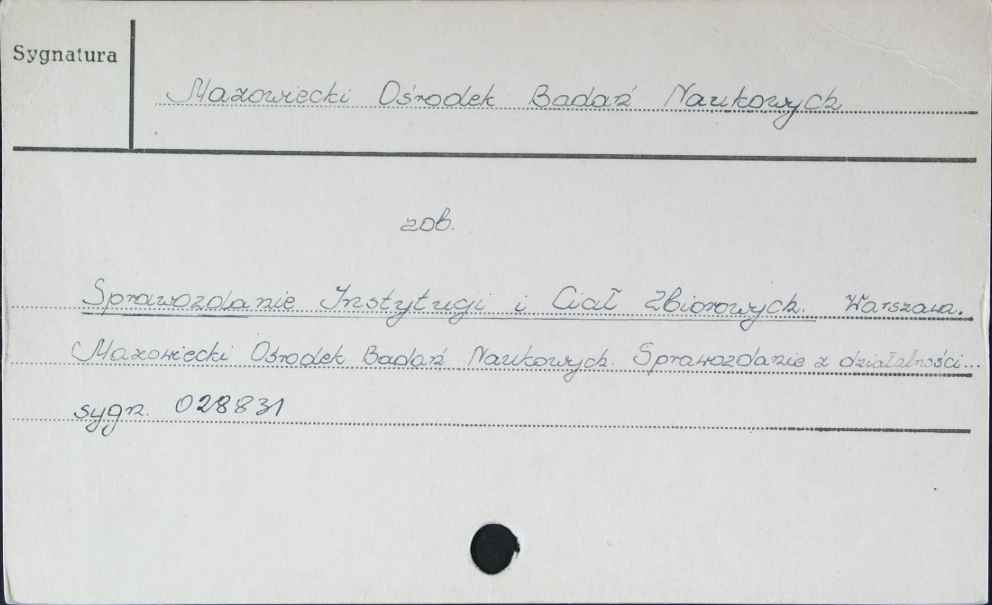 Sygnatura
Mazowiecki Ośrodek Badań Naukowych
zob.
Sprawozdanie Instytucji i Ciał Zbiorowych. Warszawa.
Mazowiecki Ośrodek Badań Naukowych. Sprawozdanie z działalności...
sygn. 028831